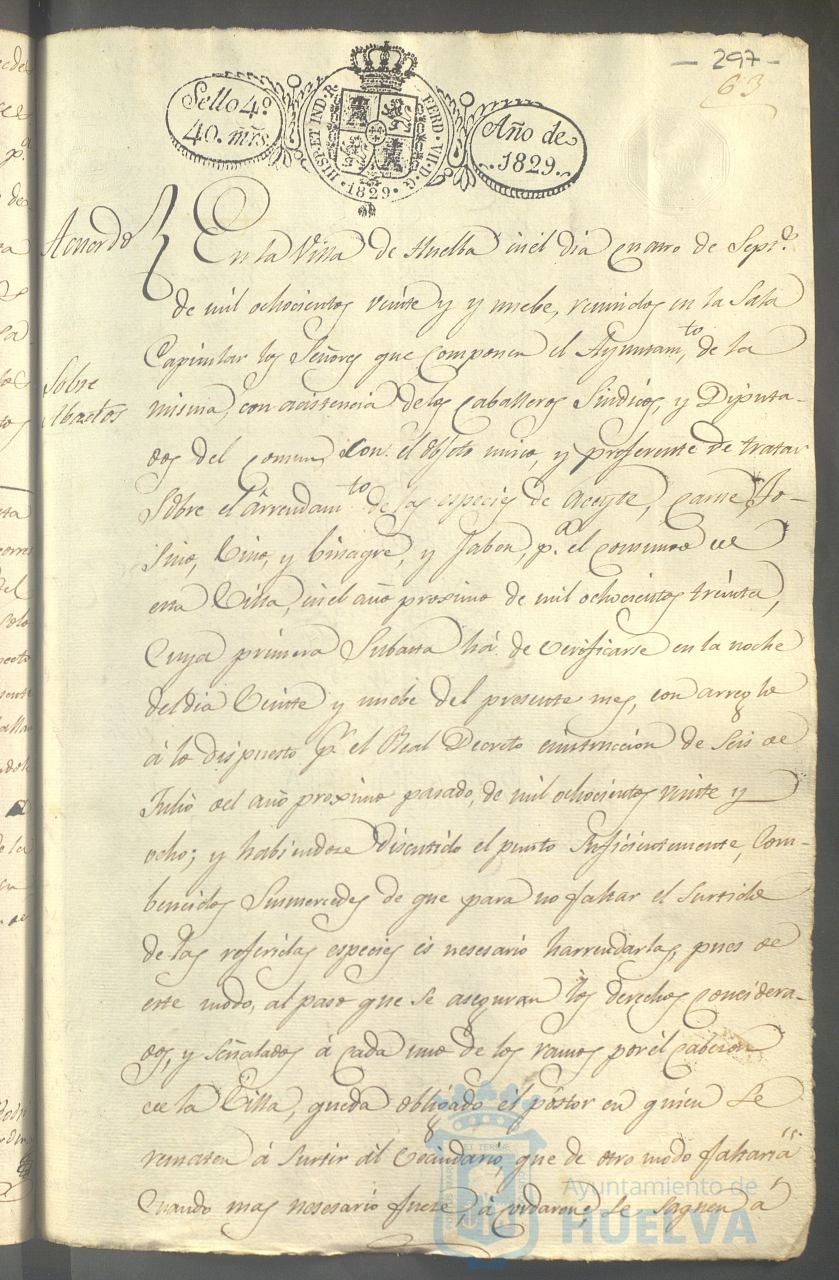 - 297 -
63
Sello 4º
40. mrs.
HISP. ET IND. R.
FERD. VII. D. G.
1829
Año de
1829.
Acuerdo
En la Villa de Huelba in el dia cuatro de Sepre.
de mil ochocientos veinte y y nuebe, reunidos en la Sala
Capitular los Señores que componen el Ayuntamto. de la
Sobre
Abastos
misma, con acistencia de los Caballeros Sindicos, y Diputa-
dos del comun, con el obgeto unico, y preferente de tratar
Sobre el Arrendamto. de las especies de Aceyte, Carne, To-
sino, Vino, y Vinagre, y Jabon, pa. el consumo de
esta Villa, in el año proximo de mil ochocientos treinta,
Cuya primera Subasta há de verificarse en la noche
del dia Veinte y nuebe del presente mes, con arreglo
á lo dispuesto pr. el Real Decreto é instruccion de Seis de
Julio del año proximo pasado, de mil ochocientos veinte y
ocho; y habiendose discutido el punto Suficientemente, Com-
bencidos Susmercedes de que para no faltar el Surtido
de las referidas especies és nesesario harrendarlas, pues de
este modo, al paso que se aseguran los derechos considera-
dos, y señalados á cada uno de los ramos por él Cabezon
de la Villa, queda obligado el póstor en quien se
rematen á Surtir ál Vecindario, que de otro modo faltaria
Cuando mas nesesario fuese, á cordaron, Se Saquen á
Ayuntamiento de
HUELVA